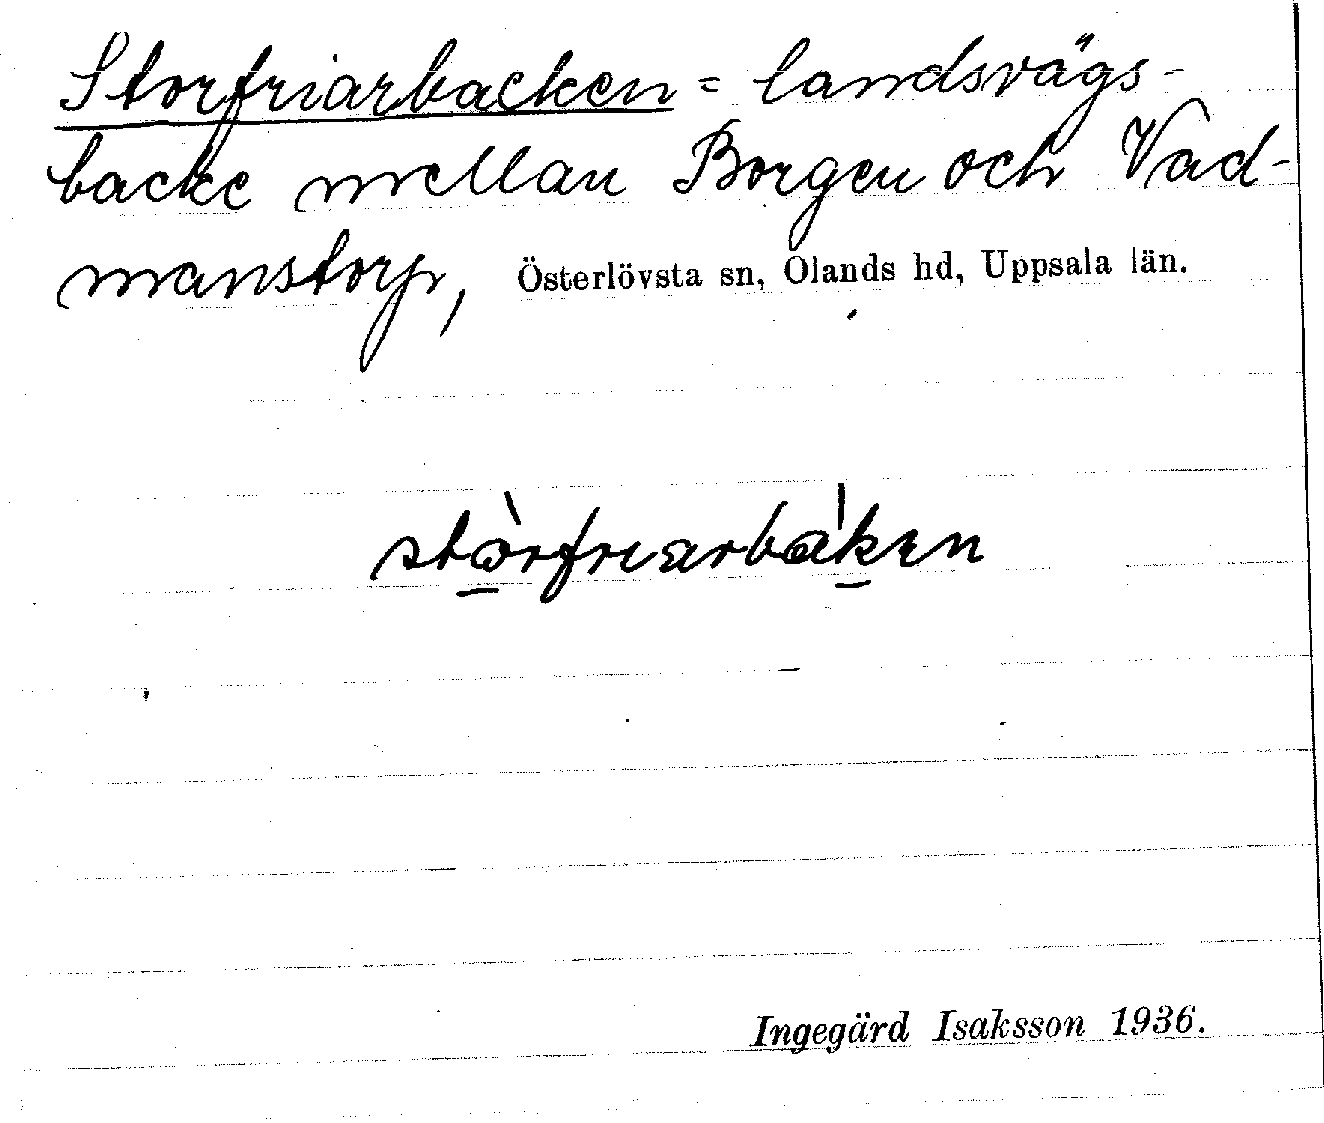 Storfriarbacken = landsvägs-
backe mellan Borgen och Vad-
manstorp, Österlövsta sn, Olands hd, Uppsala län.
stòrfrɩarbák̲en
Ingegärd Isaksson 1936.